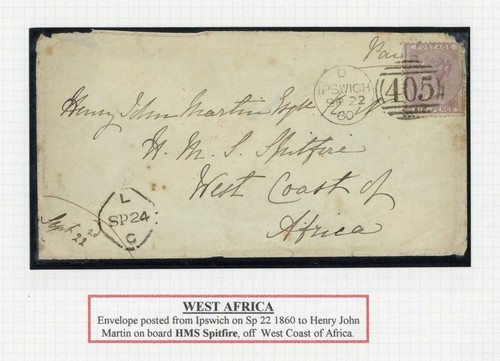 Paid
POSTAGE
SIX PENCE
D
IPSWICH
SP 22
60
405
Henry John Martin Esqre R.N.
H. M. S. Spitfire
West Coast of
Africa
L
SP 24
C
Sept 22nd
WEST AFRICA
Envelope posted from Ipswich on Sp 22 1860 to Henry John
Martin on board HMS Spitfire, off West Coast of Africa.